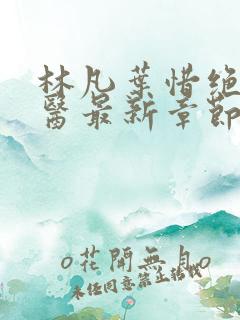 林凡葉惜绝
醫最新章節
o花開無月o
未经同意禁止转载